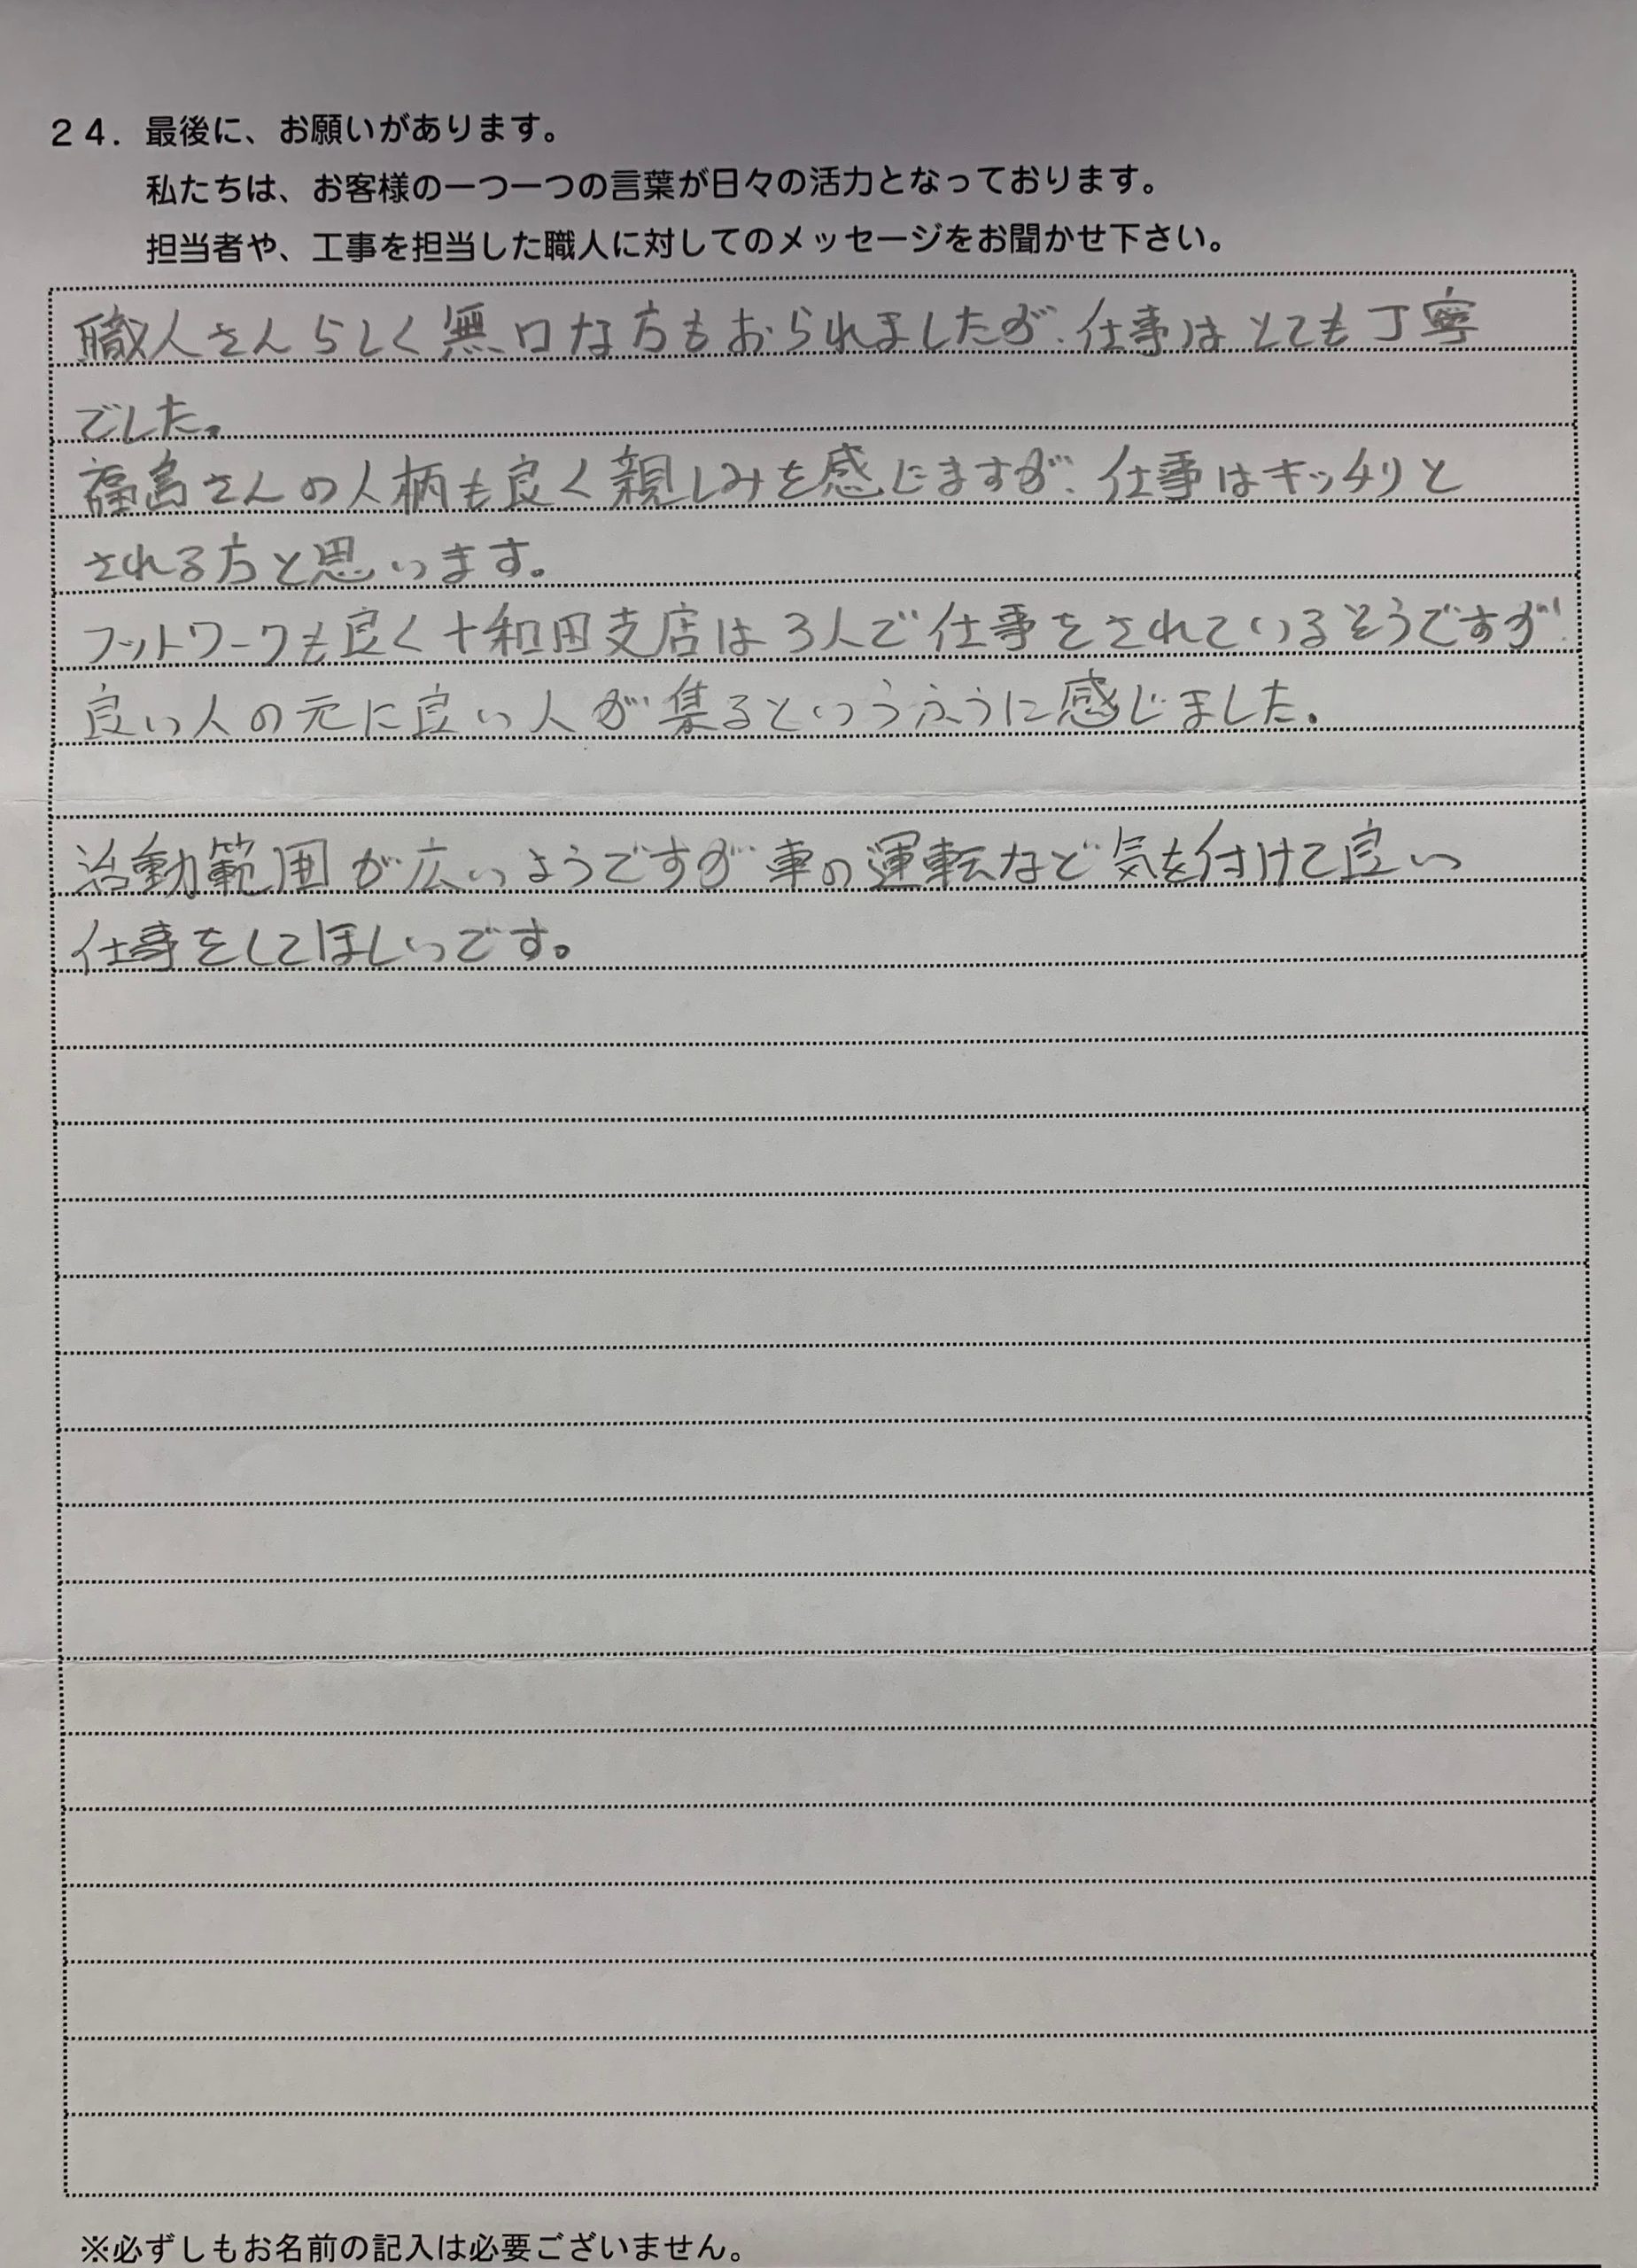 24. 最後に、お願いがあります。
私たちは、お客様の一つ一つの言葉が日々の活力となっております。
担当者や、工事を担当した職人に対してのメッセージをお聞かせ下さい。
職人さんらしく無口な方もおられましたが、仕事はとても丁寧
でした。
福島さんの人柄も良く親しみを感じますが、仕事はキッチリと
される方と思います。
フットワークも良く十和田支店は3人で仕事をされているそうですが、
良い人の元に良い人が集るというふうに感じました。
活動範囲が広いようですが車の運転など気を付けて良い
仕事をしてほしいです。
※必ずしもお名前の記入は必要ございません。